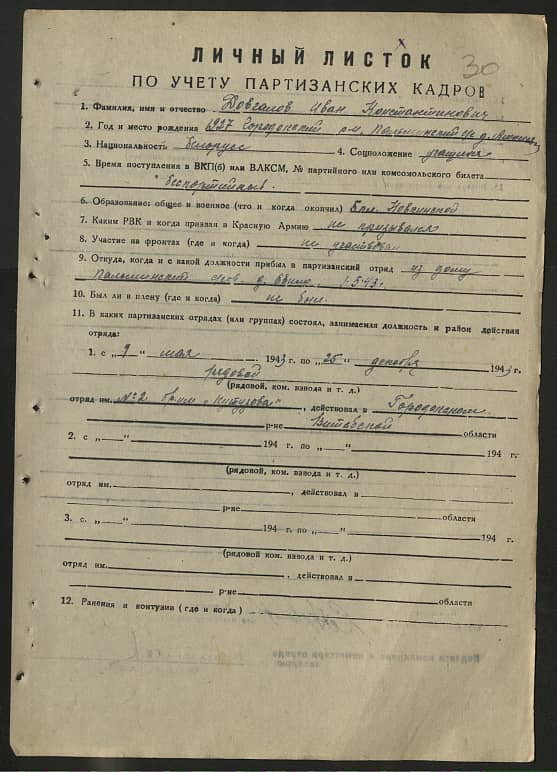 ЛИЧНЫЙ ЛИСТОК
30
ПО УЧЕТУ ПАРТИЗАНСКИХ КАДРОВ
1. Фамилия, имя и отчество Довгалов Иван Константинович
2. Год и место рождения 1927 Городокский р-н, Пальминский с/с д.
3. Национальность белорус 4. Соцположение учащийся
5. Время поступления в ВКП(б) или ВЛКСМ, № партийного или комсомольского билета
беспартийный
6. Образование: общее и военное (что и когда окончил) 6 кл.
7. Каким РВК и когда призван в Красную Армию не призывался
8. Участие на фронтах (где и когда) не участвовал
9. Откуда, когда и с какой должности прибыл в партизанский отряд из дому
Пальминский д. 1.5.43г.
10. Был ли в плену (где и когда) не был.
11. В каких партизанских отрядах (или группах) состоял, занимаемая должность и район действия
отряда:
1. с „9“ мая 1943 г по „25“ декабря 1943 г
рядовой
(рядовой, ком. взвода и т. д.)
отряд им. №2 бр. им „Кутузова“, действовал в Городокском
р-не Витебской области
2. с „ “ 194 г по „ “ 194 г.
(рядовой, ком. взвода и т. д.)
отряд им. , действовал в
р-не области
3. с. „ “ 194 г. по „ “ 194 г.
(рядовой ком. взвода и т. д.)
отряд им. , действовал в
р-не области
12. Ранения и контузии (где и когда)